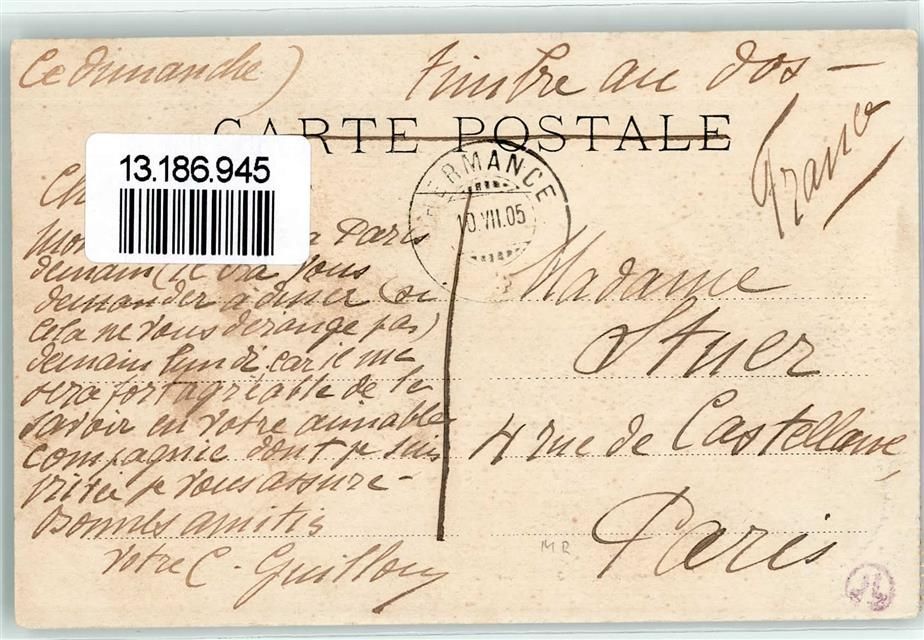 Ce dimanche)
Timbre au dos —
CARTE POSTALE
France
13.186.945
HERMANCE
10.VII.05
Ch
Mon a Paris
demain (il ira vous
demander à diner (si
cela ne vous dérange pas)
demain lundi car il me
sera fort agréable de le
savoir en votre aimable
compagnie dont je suis
privée je vous assure -
Bonnes amitiés
Votre C. Guillou
Madame
Stuer
4 rue de Castellane,
Paris
MR